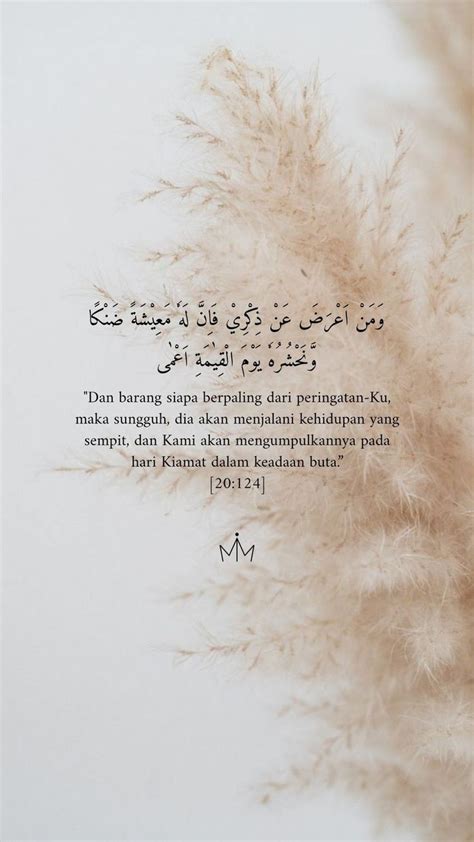 وَمَنْ اَعْرَضَ عَنْ ذِكْرِيْ فَاِنَّ لَهٗ مَعِيْشَةً ضَنْكًا
وَّنَحْشُرُهٗ يَوْمَ الْقِيٰمَةِ اَعْمٰى
"Dan barang siapa berpaling dari peringatan-Ku,
maka sungguh, dia akan menjalani kehidupan yang
sempit, dan Kami akan mengumpulkannya pada
hari Kiamat dalam keadaan buta.”
[20:124]